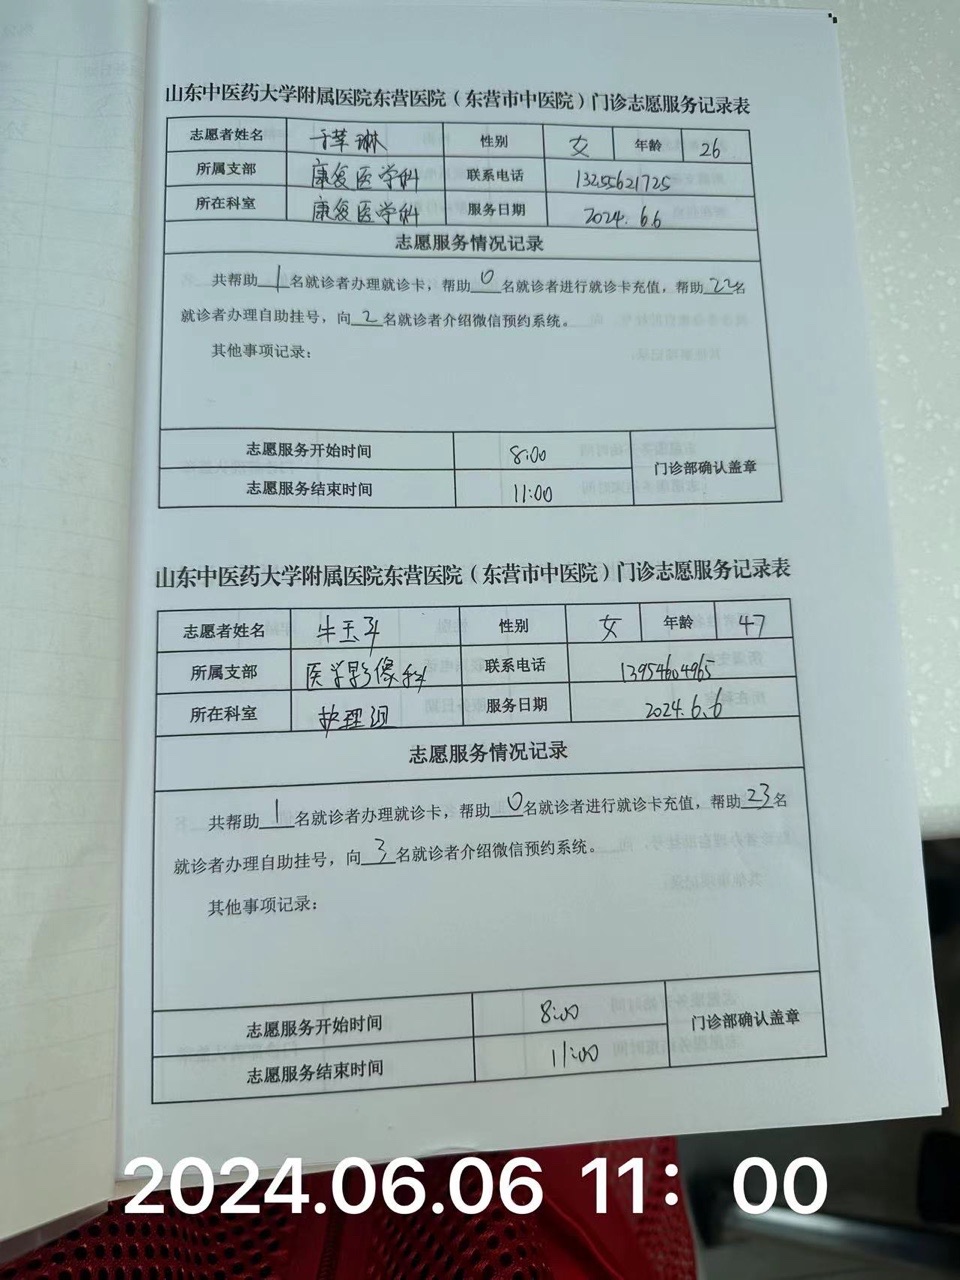 山东中医药大学附属医院东营医院（东营市中医院）门诊志愿服务记录表
志愿者姓名 于苹琳 性别 女 年龄 26
所属支部 康复医学科 联系电话 13255621725
所在科室 康复医学科 服务日期 2024.6.6
志愿服务情况记录
共帮助1名就诊者办理就诊卡，帮助0名就诊者进行就诊卡充值，帮助22名
就诊者办理自助挂号，向2名就诊者介绍微信预约系统。
其他事项记录：
志愿服务开始时间 8:00
门诊部确认盖章
志愿服务结束时间 11:00
山东中医药大学附属医院东营医院（东营市中医院）门诊志愿服务记录表
志愿者姓名 牛玉 性别 女 年龄 47
所属支部 医学影像科 联系电话 13954604965
所在科室 护理组 服务日期 2024.6.6
志愿服务情况记录
共帮助1名就诊者办理就诊卡，帮助0名就诊者进行就诊卡充值，帮助23名
就诊者办理自助挂号，向3名就诊者介绍微信预约系统。
其他事项记录：
志愿服务开始时间 8:00
门诊部确认盖章
志愿服务结束时间 11:00
2024.06.06 11：00